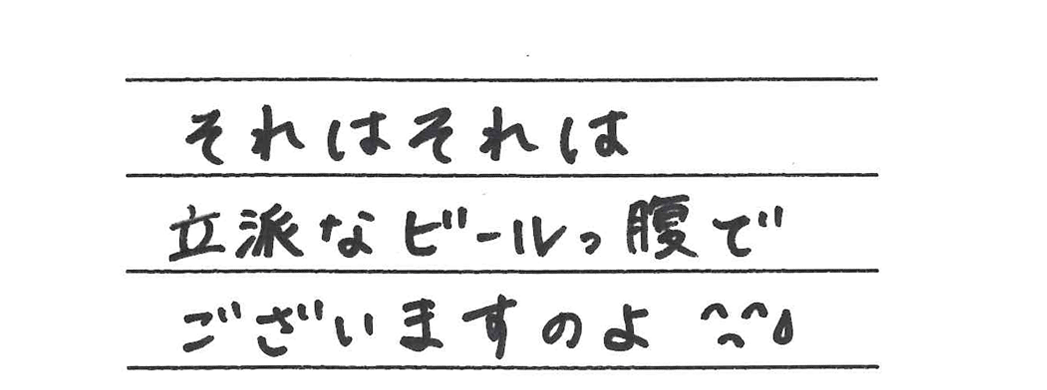 それはそれは
立派なビールっ腹で
ございますのよ ^_^💧